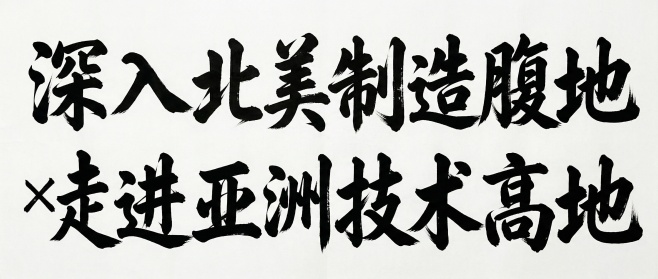 深入北美制造腹地
×走进亚洲技术高地